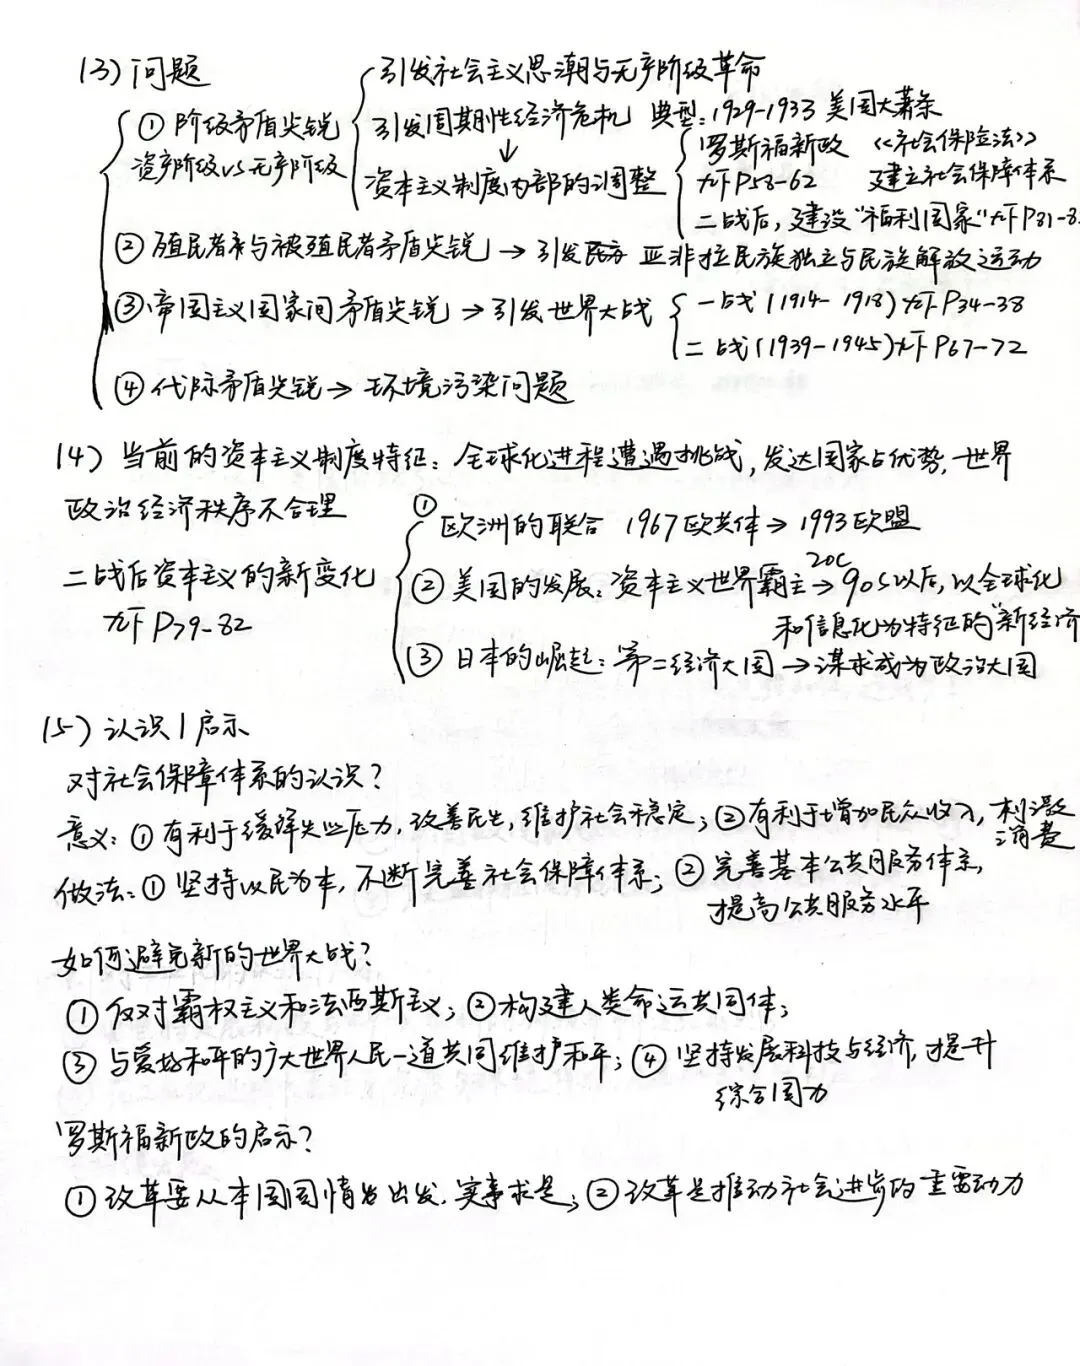 (3) 问题
① 阶级矛盾尖锐
资产阶级vs无产阶级
引发社会主义思潮与无产阶级革命
引发周期性经济危机 典型：1929-1933 美国大萧条
↓
资本主义制度内部的调整
罗斯福新政 《社会保险法》
九下P58-62 建立社会保障体系
二战后，建设“福利国家”九下P81-8
② 殖民者与被殖民者矛盾尖锐 → 引发 亚非拉民族独立与民族解放运动
③ 帝国主义国家间矛盾尖锐 → 引发世界大战
一战(1914-1918)九下P34-38
二战(1939-1945)九下P67-72
④ 代际矛盾尖锐 → 环境污染问题
(4) 当前的资本主义制度特征：全球化进程遭遇挑战，发达国家占优势，世界
政治经济秩序不合理
二战后资本主义的新变化
九下P79-82
① 欧洲的联合 1967欧共体 → 1993欧盟
② 美国的发展：资本主义世界霸主 → 20C 90s以后，以全球化
和信息化为特征的“新经济
③ 日本的崛起：第二经济大国 → 谋求成为政治大国
(5) 认识/启示
对社会保障体系的认识？
意义：① 有利于缓解失业压力，改善民生，维护社会稳定；② 有利于增加民众收入，刺激
消费
做法：① 坚持以民为本，不断完善社会保障体系；② 完善基本公共服务体系，
提高公共服务水平
如何避免新的世界大战？
① 反对霸权主义和法西斯主义；② 构建人类命运共同体；
③ 与爱好和平的广大世界人民一道共同维护和平；④ 坚持发展科技与经济，提升
综合国力
罗斯福新政的启示？
① 改革要从本国国情出发，实事求是；② 改革是推动社会进步的重要动力